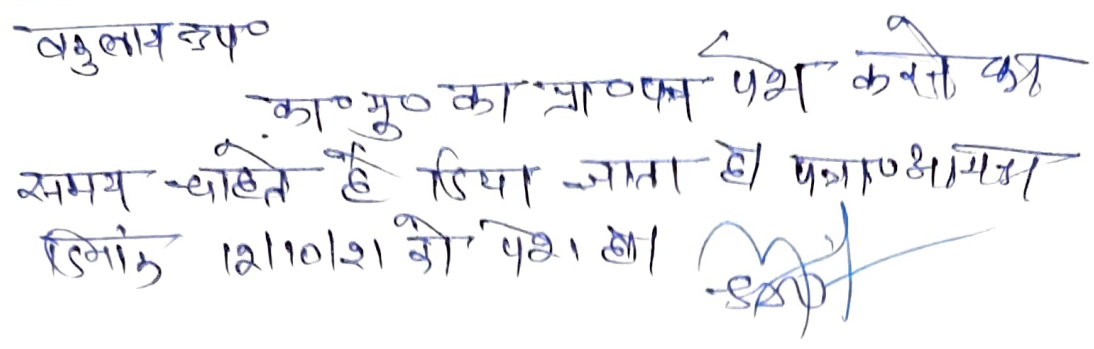 वकुलाय उप०
का०मु० का प्रा०पत्र पेश करने का
समय चाहते है दिया जाता है। पत्रा० आयन्दा
दिनांक 12/10/21 को पेश हो।